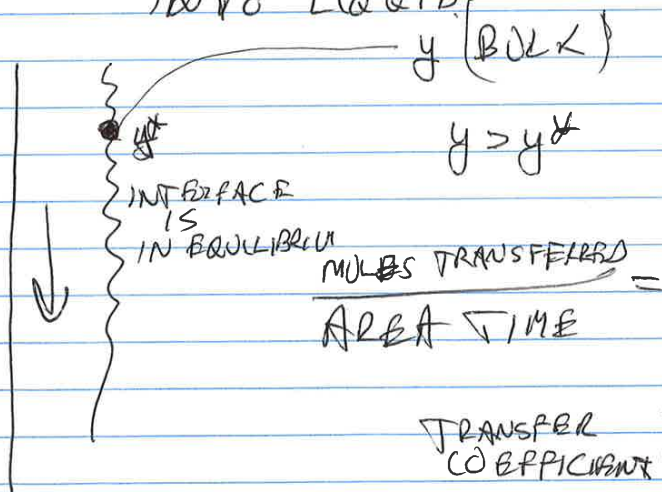 INTO LIQUID
y (BULK)
y*
y > y*
INTERFACE
IS
IN EQUILIBRIU
MOLES TRANSFERRED =
AREA TIME
TRANSFER
COEFFICIENT